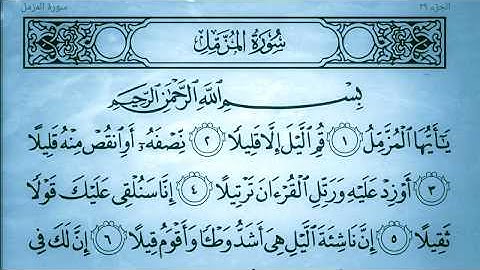 الجزء ٢٩
سورة المزمل
سُورَةُ المُزَّمِّل
بِسْمِ ٱللَّهِ ٱلرَّحْمَٰنِ ٱلرَّحِيمِ
يَٰٓأَيُّهَا ٱلْمُزَّمِّلُ ١ قُمِ ٱلَّيْلَ إِلَّا قَلِيلًا ٢ نِّصْفَهُۥٓ أَوِ ٱنقُصْ مِنْهُ قَلِيلًا
٣ أَوْ زِدْ عَلَيْهِ وَرَتِّلِ ٱلْقُرْءَانَ تَرْتِيلًا ٤ إِنَّا سَنُلْقِى عَلَيْكَ قَوْلًا
ثَقِيلًا ٥ إِنَّ نَاشِئَةَ ٱلَّيْلِ هِىَ أَشَدُّ وَطْـًٔا وَأَقْوَمُ قِيلًا ٦ إِنَّ لَكَ فِى